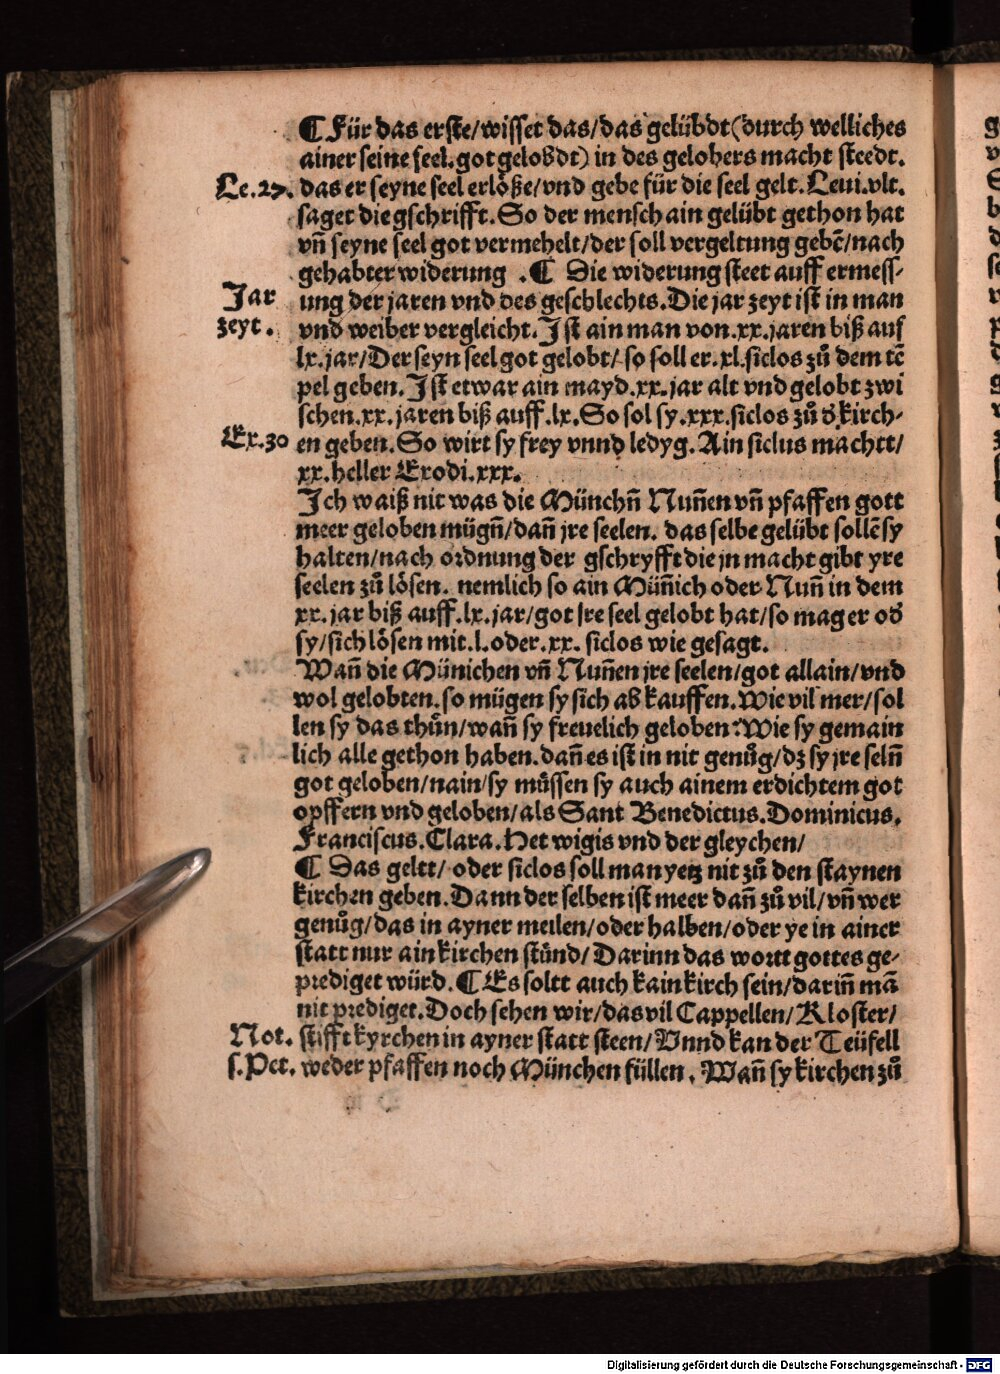 ¶ Für das erste/wisset das/das gelübdt (durch welliches
ainer seine seel.got gelobdt) in des gelobers macht steedt.
Le.27. das er seyne seel erlöße/vnd gebe für die seel gelt.Leui.vlt.
saget die gschrifft.So der mensch ain gelübt gethon hat
vn̄ seyne seel got vermehelt/der soll vergeltung gebē/nach
gehabter widerung .¶ Die widerung steet auff ermess-
Jar ung der jaren vnd des geschlechts.Die jar zeyt ist in man
zeyt. vnd weiber vergleicht.Ist ain man von.xx.jaren biß auf
lx.jar/Der seyn seel got gelobt/so soll er.xl.siclos zů dem tē
pel geben.Ist etwar ain mayd.xx.jar alt vnd gelobt zwi
schen.xx.jaren biß auff.lx.So sol sy.xxx.siclos zů d̓ kirch-
Ex.30 en geben.So wirt sy frey vnnd ledyg.Ain siclus machtt/
xx.heller Exodi.xxx.
Ich waiß nit was die Münchn̄ Nun̄en vn̄ pfaffen gott
meer geloben mügn̄/dan̄ jre seelen. das selbe gelübt sollē sy
halten/nach ordnung der gschryfft die jn macht gibt yre
seelen zů lösen. nemlich so ain Mün̄ich oder Nun̄ in dem
xx.jar biß auff.lx.jar/got jre seel gelobt hat/so mag er od̓
sy/sich lösen mit.l.oder.xx. siclos wie gesagt.
Wan̄ die Münichen vn̄ Nun̄en jre seelen/got allain/vnd
wol gelobten.so mügen sy sich abkauffen.Wie vil mer/sol
len sy das thůn/wan̄ sy freuelich geloben?Wie sy gemain
lich alle gethon haben.dan̄ es ist in nit genůg/dz sy jre seln̄
got geloben/nain/sy müssen sy auch ainem erdichtem got
opffern vnd geloben/als Sant Benedictus.Dominicus.
Franciscus.Clara.Hetwigis vnd der gleychen/
¶ Das geltt/oder siclos soll man yetz nit zů den staynen
kirchen geben.Dann der selben ist meer dan̄ zů vil/vn̄ wer
genůg/das in ayner meilen/oder halben/oder ye in ainer
statt nur ain kirchen stünd/Darinn das wortt gottes ge-
prediget würd.¶ Es soltt auch kain kirch sein/darin̄ mā
nit prediget.Doch sehen wir/das vil Cappellen/Kloster/
Not. stifft kyrchen in ayner statt steen/Vnnd kan der Teüfell
s.Pet. weder pfaffen noch München füllen. Wan̄ sy kirchen zů
Digitalisierung gefördert durch die Deutsche Forschungsgemeinschaft - DFG